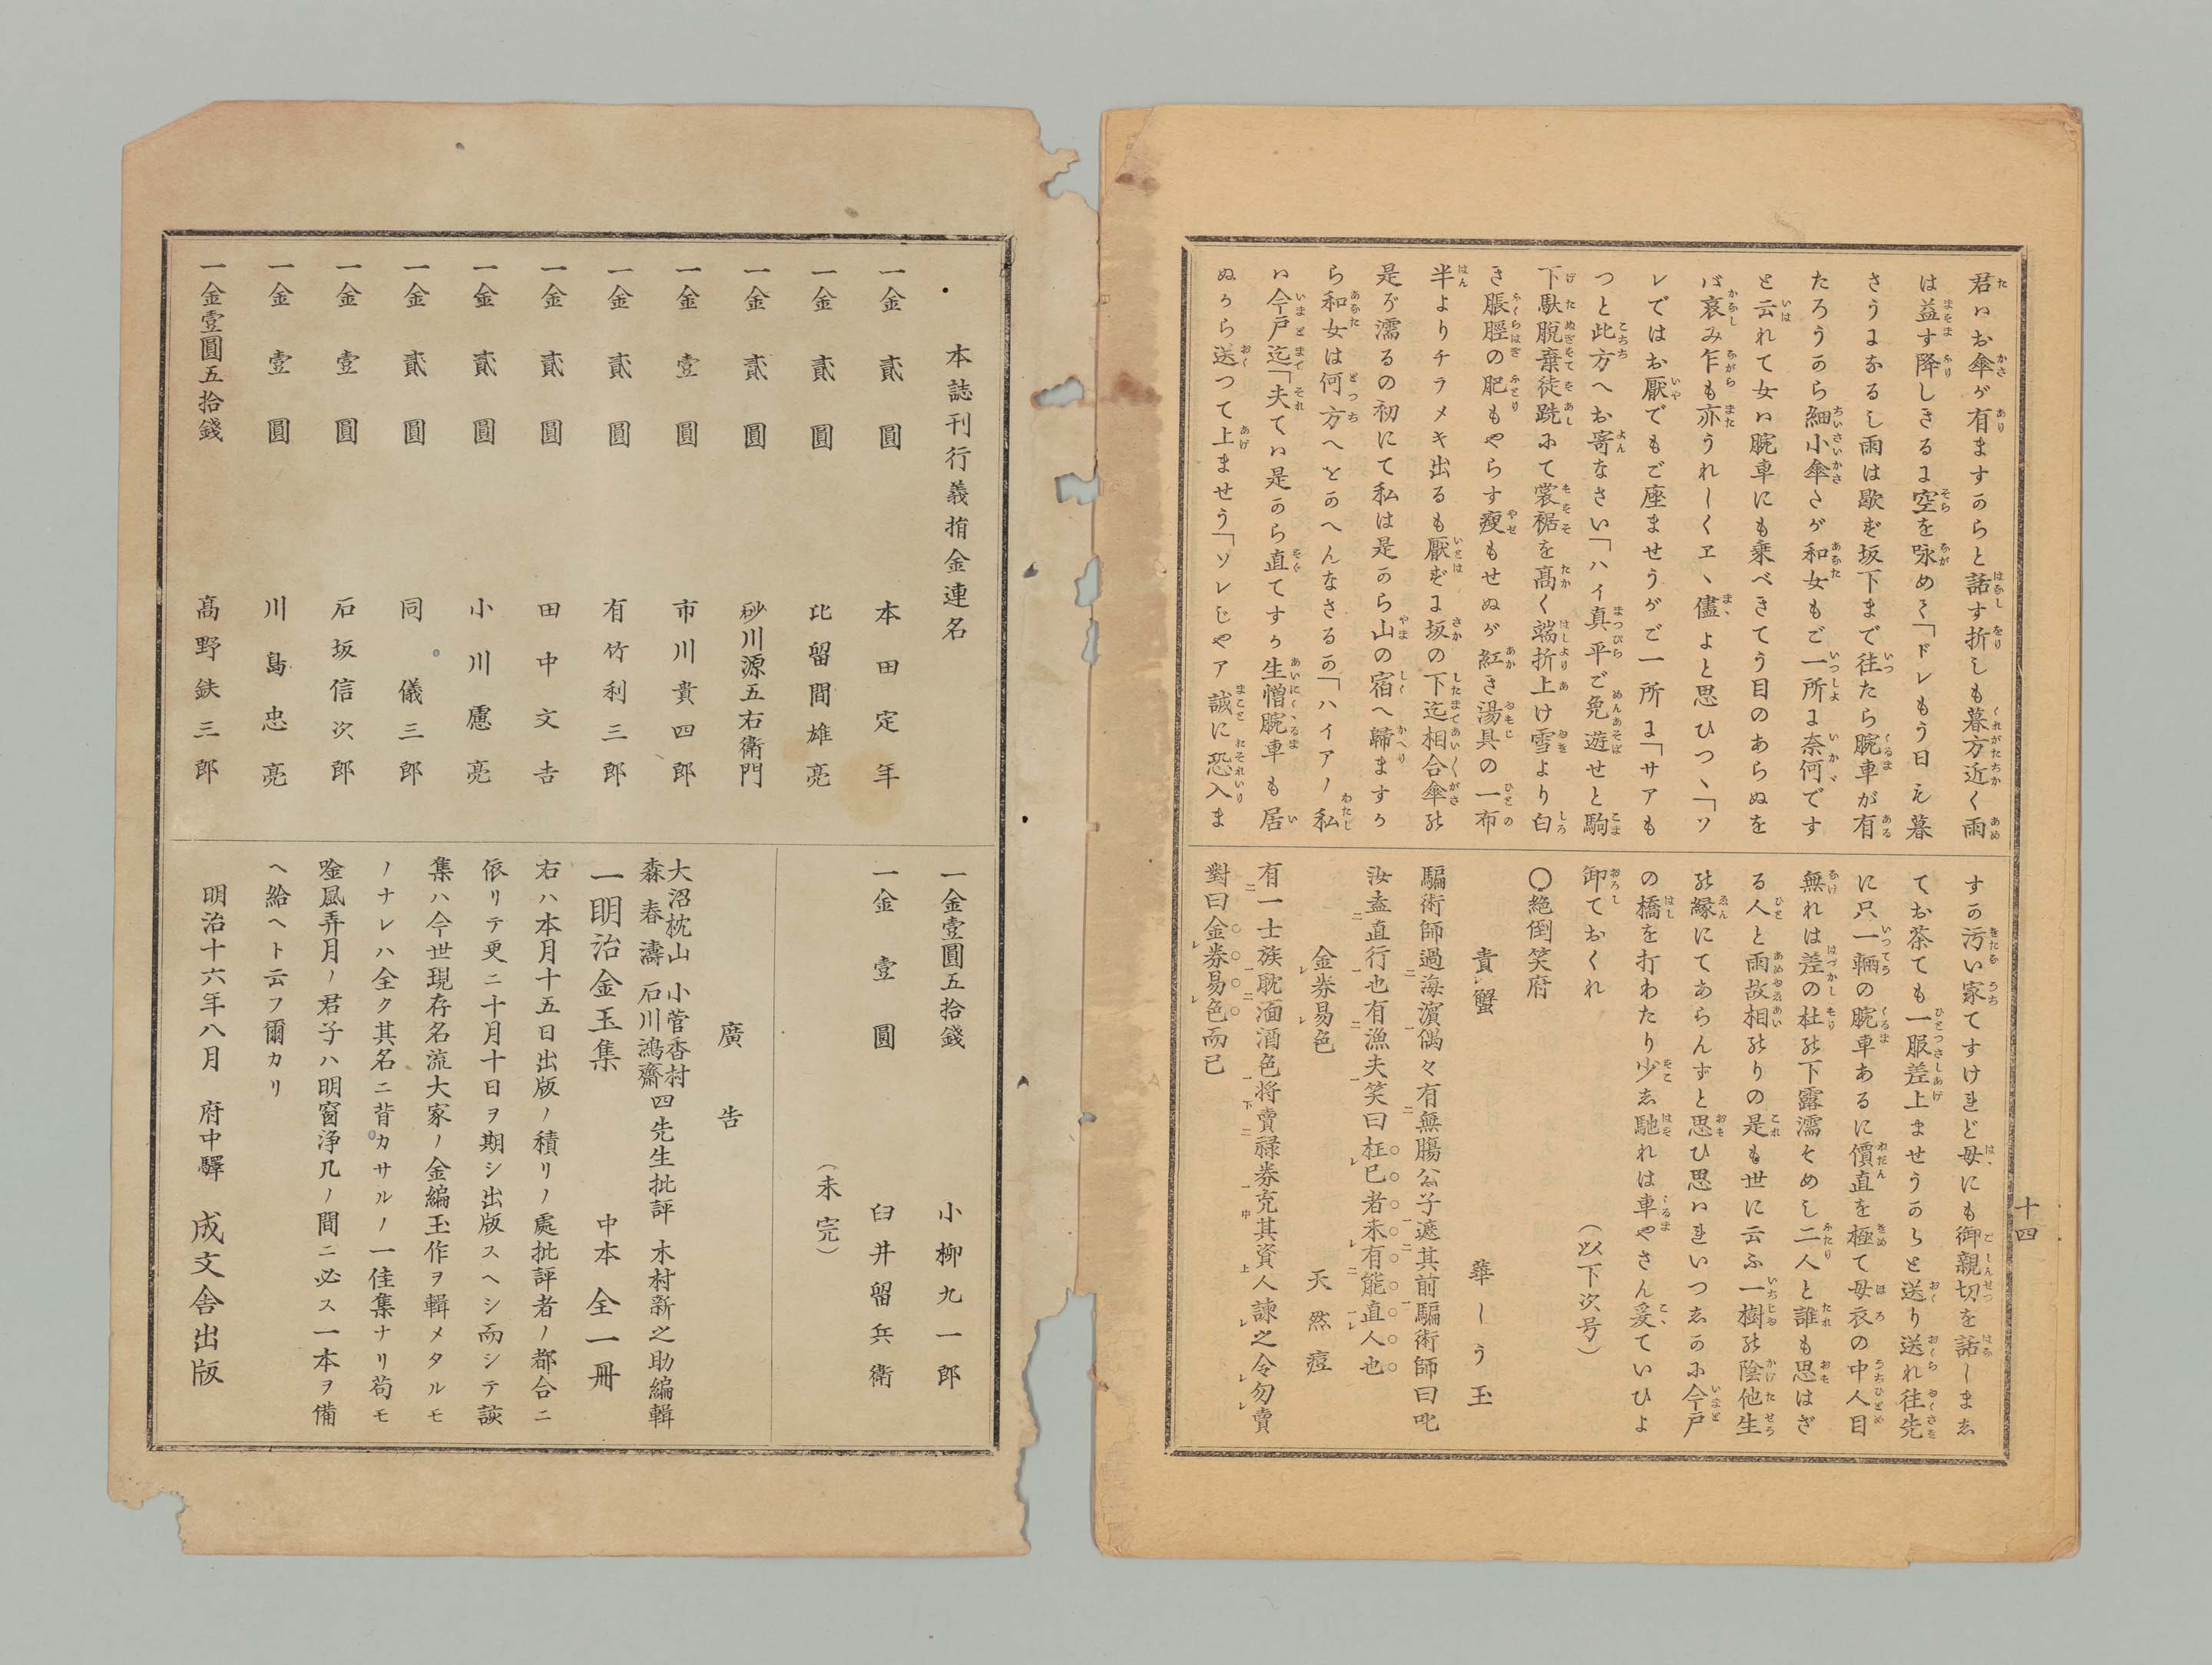 十四
君ハお傘が有ますのらと話す折しも暮方近く雨
は益す降しきるに空を咏めて「ドレもう日も暮
さうになるし雨は歇ず坂下まで往たら腕車が有
たろうのら細小傘だが和女もご一所に奈何です
と云れて女ハ腕車にも乗べきてう目のあらぬを
バ哀み乍も亦うれしくヱヽ儘よと思ひつヽ「ソ
レではお厭でもご座ませうがご一所に「サアも
つと此方へお寄なさい「ハイ真平ご免遊せと駒
下駄脱棄徒跣にて裳裾を高く端折上け雪より白
き脹脛の肥もやらす瘦もせぬが紅き湯具の一布
半よりチラメキ出るも厭ずに坂の下迄相合傘の
是が濡るの初にて私は是のら山の宿へ歸ますか
ら和女は何方へとのへんなさるの「ハイアノ私
ハ今戸迄「夫てハ是のら直てすか生憎腕車も居
ぬから送つて上ませう「ソレじやア誠に恐入ま
すの汚い家てすけれど母にも御親切を話しまし
てお茶ても一服差上ませうのらと送り送れ往先
に只一輛の腕車あるに價直を極て母衣の中人目
無れは差の杜の下露濡そめし二人と誰も思はざ
る人と雨故相のりの是も世に云ふ一樹の陰他生
の縁にてあらんずと思ひ思ハれいつしのに今戸
の橋を打わたり少し馳れは車やさん爰ていひよ
卸ておくれ　（以下次号）
〇絶倒笑府
責蟹　華しう玉
騙術師過海濱偶々有無膓公子遮其前騙術師曰叱
汝盍直行也有漁夫笑曰枉已者未有能直人也
金券易色　天然痘
有一士族耽湎酒色将賣禄券克其資人諫之令勿賣
對曰金券易色而已
本誌刊行義捐金連名
一金貳圓　本田定年
一金貳圓　比留間雄亮
一金貳圓　砂川源五右衛門
一金壹圓　市川貴四郎
一金貳圓　有竹利三郎
一金貳圓　田中文吉
一金貳圓　小川慮亮
一金貳圓　同儀三郎
一金壹圓　石坂信次郎
一金壹圓　川島忠亮
一金壹圓五拾錢　髙野鉄三郎
一金壹圓五拾錢　小柳九一郎
一金壹圓　臼井留兵衛
（未完）
廣告
大沼枕山　小菅香村
森春濤　石川鴻齋
四先生批評　木村新之助編輯
一明治金玉集　中本　全一冊
右ハ本月十五日出版ノ積リノ處批評者ノ都合ニ
依リテ更ニ十月十日ヲ期シ出版スヘシ而シテ該
集ハ今世現存名流大家ノ金編玉作ヲ輯メタルモ
ノナレハ全ク其名ニ背カサルノ一佳集ナリ苟モ
唫風弄月ノ君子ハ明窗浄几ノ間ニ必ス一本ヲ備
ヘ給ヘト云フ爾カリ
明治十六年八月　府中驛　成文舎出版